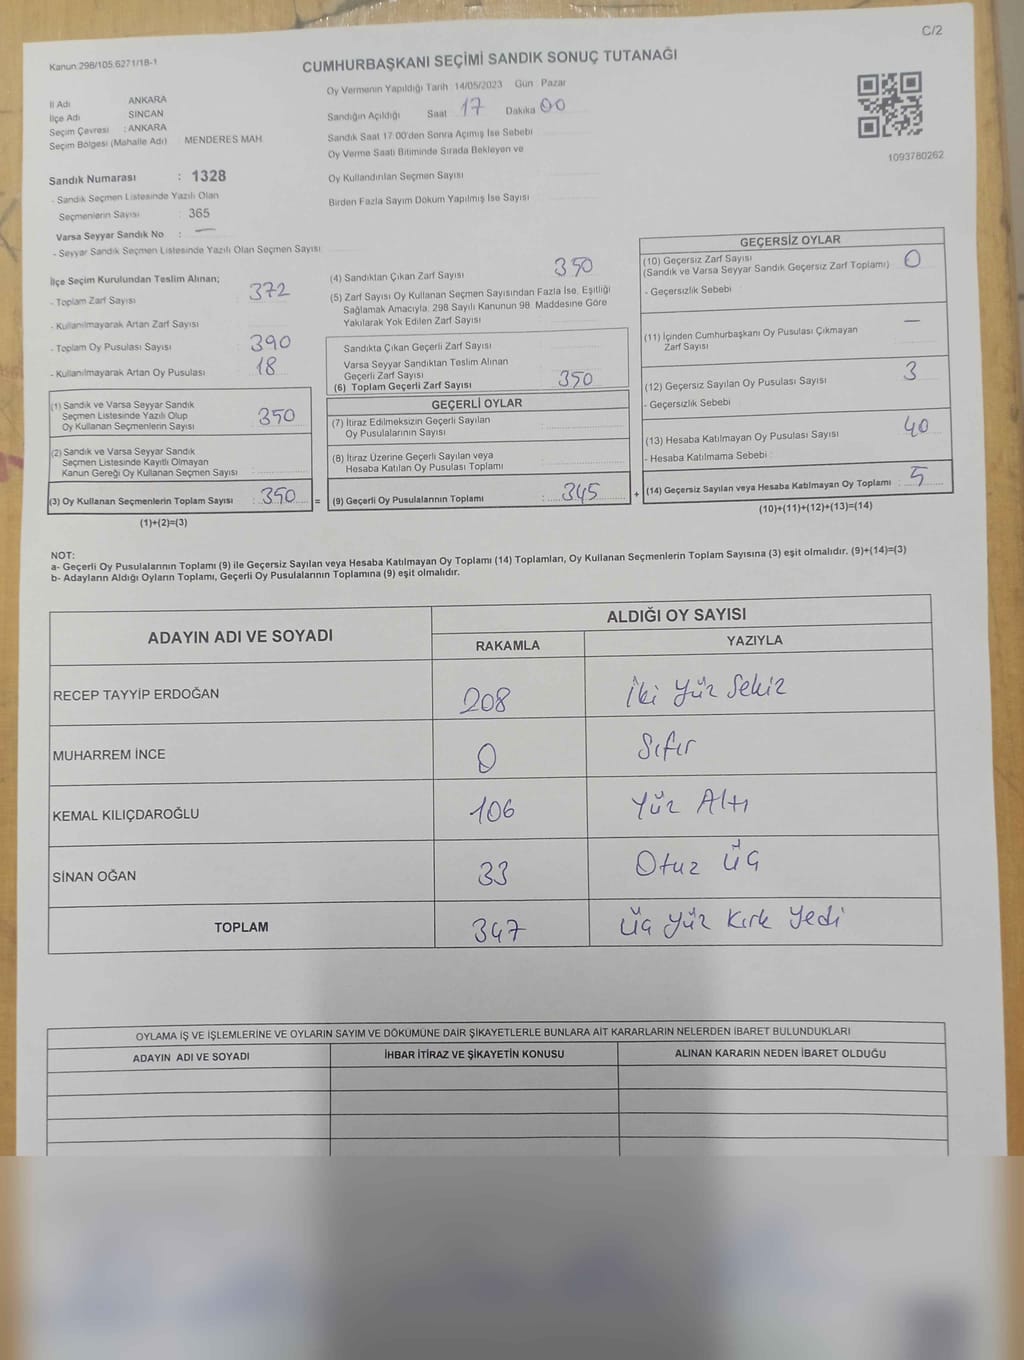 C/2
Kanun 298/105.6271/18-1
CUMHURBAŞKANI SEÇİMİ SANDIK SONUÇ TUTANAĞI
İl Adı ANKARA
İlçe Adı SİNCAN
Seçim Çevresi : ANKARA
Seçim Bölgesi (Mahalle Adı) MENDERES MAH.
Sandık Numarası : 1328
- Sandık Seçmen Listesinde Yazılı Olan
Seçmenlerin Sayısı : 365
Varsa Seyyar Sandık No : —
- Seyyar Sandık Seçmen Listesinde Yazılı Olan Seçmen Sayısı
Oy Vermenin Yapıldığı Tarih 14/05/2023 Gün Pazar
Sandığın Açıldığı Saat 17 Dakika 00
Sandık Saat 17.00'den Sonra Açılmış İse Sebebi
Oy Verme Saati Bitiminde Sırada Bekleyen ve
Oy Kullandırılan Seçmen Sayısı
Birden Fazla Sayım Döküm Yapılmış İse Sayısı
1093780262
İlçe Seçim Kurulundan Teslim Alınan;
- Toplam Zarf Sayısı 372
- Kullanılmayarak Artan Zarf Sayısı
- Toplam Oy Pusulası Sayısı 390
- Kullanılmayarak Artan Oy Pusulası 18
(1) Sandık ve Varsa Seyyar Sandık
Seçmen Listesinde Yazılı Olup
Oy Kullanan Seçmenlerin Sayısı 350
(2) Sandık ve Varsa Seyyar Sandık
Seçmen Listesinde Kayıtlı Olmayan
Kanun Gereği Oy Kullanan Seçmen Sayısı
(3) Oy Kullanan Seçmenlerin Toplam Sayısı : 350 =
(1)+(2)=(3)
(4) Sandıktan Çıkan Zarf Sayısı 350
(5) Zarf Sayısı Oy Kullanan Seçmen Sayısından Fazla İse, Eşitliği
Sağlamak Amacıyla, 298 Sayılı Kanunun 98. Maddesine Göre
Yakılarak Yok Edilen Zarf Sayısı
Sandıkta Çıkan Geçerli Zarf Sayısı
Varsa Seyyar Sandıktan Teslim Alınan
Geçerli Zarf Sayısı
(6) Toplam Geçerli Zarf Sayısı 350
GEÇERLİ OYLAR
(7) İtiraz Edilmeksizin Geçerli Sayılan
Oy Pusulalarının Sayısı
(8) İtiraz Üzerine Geçerli Sayılan veya
Hesaba Katılan Oy Pusulası Toplamı
(9) Geçerli Oy Pusulalarının Toplamı : 345 +
GEÇERSİZ OYLAR
(10) Geçersiz Zarf Sayısı
(Sandık ve Varsa Seyyar Sandık Geçersiz Zarf Toplamı) 0
- Geçersizlik Sebebi
(11) İçinden Cumhurbaşkanı Oy Pusulası Çıkmayan
Zarf Sayısı —
(12) Geçersiz Sayılan Oy Pusulası Sayısı 3
- Geçersizlik Sebebi
(13) Hesaba Katılmayan Oy Pusulası Sayısı 40
- Hesaba Katılmama Sebebi
(14) Geçersiz Sayılan veya Hesaba Katılmayan Oy Toplamı : 5
(10)+(11)+(12)+(13)=(14)
NOT:
a- Geçerli Oy Pusulalarının Toplamı (9) ile Geçersiz Sayılan veya Hesaba Katılmayan Oy Toplamı (14) Toplamları, Oy Kullanan Seçmenlerin Toplam Sayısına (3) eşit olmalıdır. (9)+(14)=(3)
b- Adayların Aldığı Oyların Toplamı, Geçerli Oy Pusulalarının Toplamına (9) eşit olmalıdır.
ADAYIN ADI VE SOYADI ALDIĞI OY SAYISI
RAKAMLA YAZIYLA
RECEP TAYYİP ERDOĞAN 208 İki Yüz Sekiz
MUHARREM İNCE 0 Sıfır
KEMAL KILIÇDAROĞLU 106 Yüz Altı
SİNAN OĞAN 33 Otuz Üç
TOPLAM 347 Üç Yüz Kırk Yedi
OYLAMA İŞ VE İŞLEMLERİNE VE OYLARIN SAYIM VE DÖKÜMÜNE DAİR ŞİKAYETLERLE BUNLARA AİT KARARLARIN NELERDEN İBARET BULUNDUKLARI
ADAYIN ADI VE SOYADI İHBAR İTİRAZ VE ŞİKAYETİN KONUSU ALINAN KARARIN NEDEN İBARET OLDUĞU